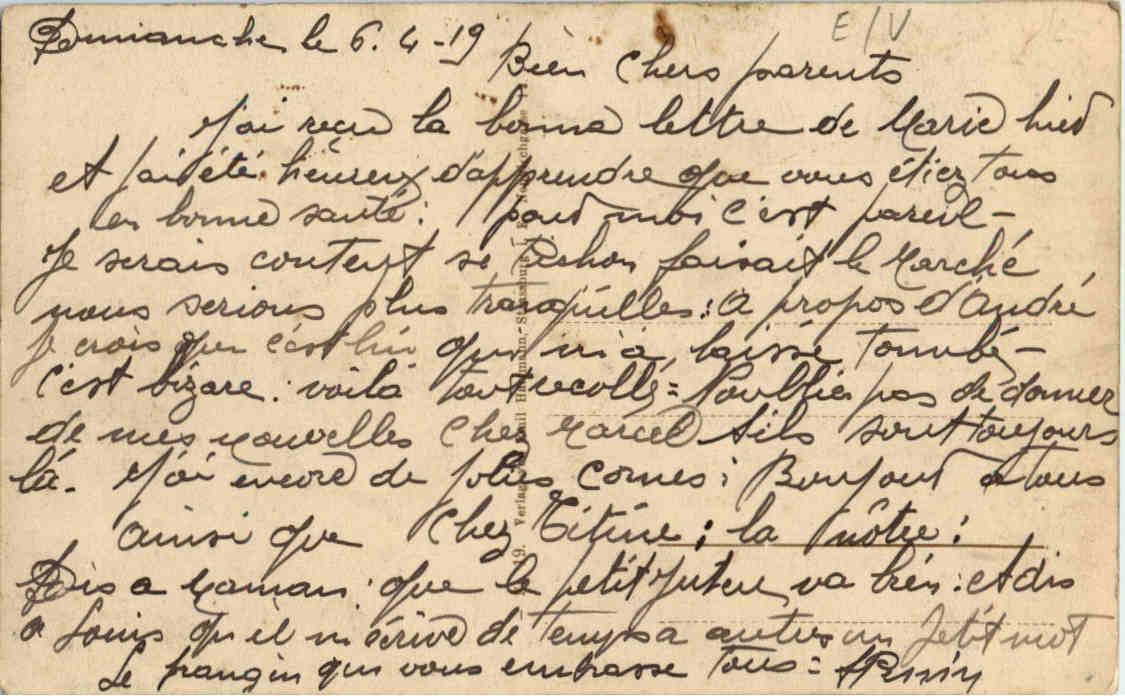 Dimanche le 6.4-19
E/V
Bien Chers parents
J'ai recu la bonne lettre de Marie hier
et j'ai été heureux d'apprendre que vous étiez tous
en bonne santé: pour moi c'est pareil-
Je serais content se faisait le Marché
nous serions plus tranquilles: a propos d'André
je crois que c'est lui qui m'a laissé tombé-
c'est bizare. voilà tout recollé= l'oubliez pas de donner
de mes nouvelles chez Marcel sils sont toujours
là. J'ai encore de jolies cornes: Bonjour a tous
ainsi que chez Titine; la nôtre:
Dis a Maman. que le petit va bien: et dis
a Louis qu'il m'écrive de temps a autres un petit mot
Le frangin qui vous embrasse tous=
19. Verlag Strassburg